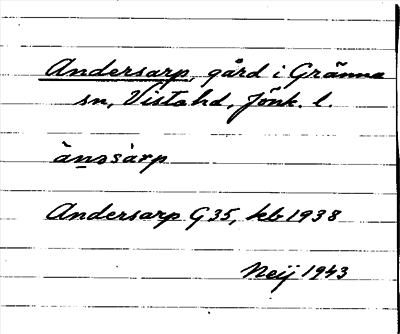 Andersarp, gård i Gränna
sn, Vista hd, Jönk. l.
ànəsàrp
Andersarp G35, kb 1938
Neij 1943